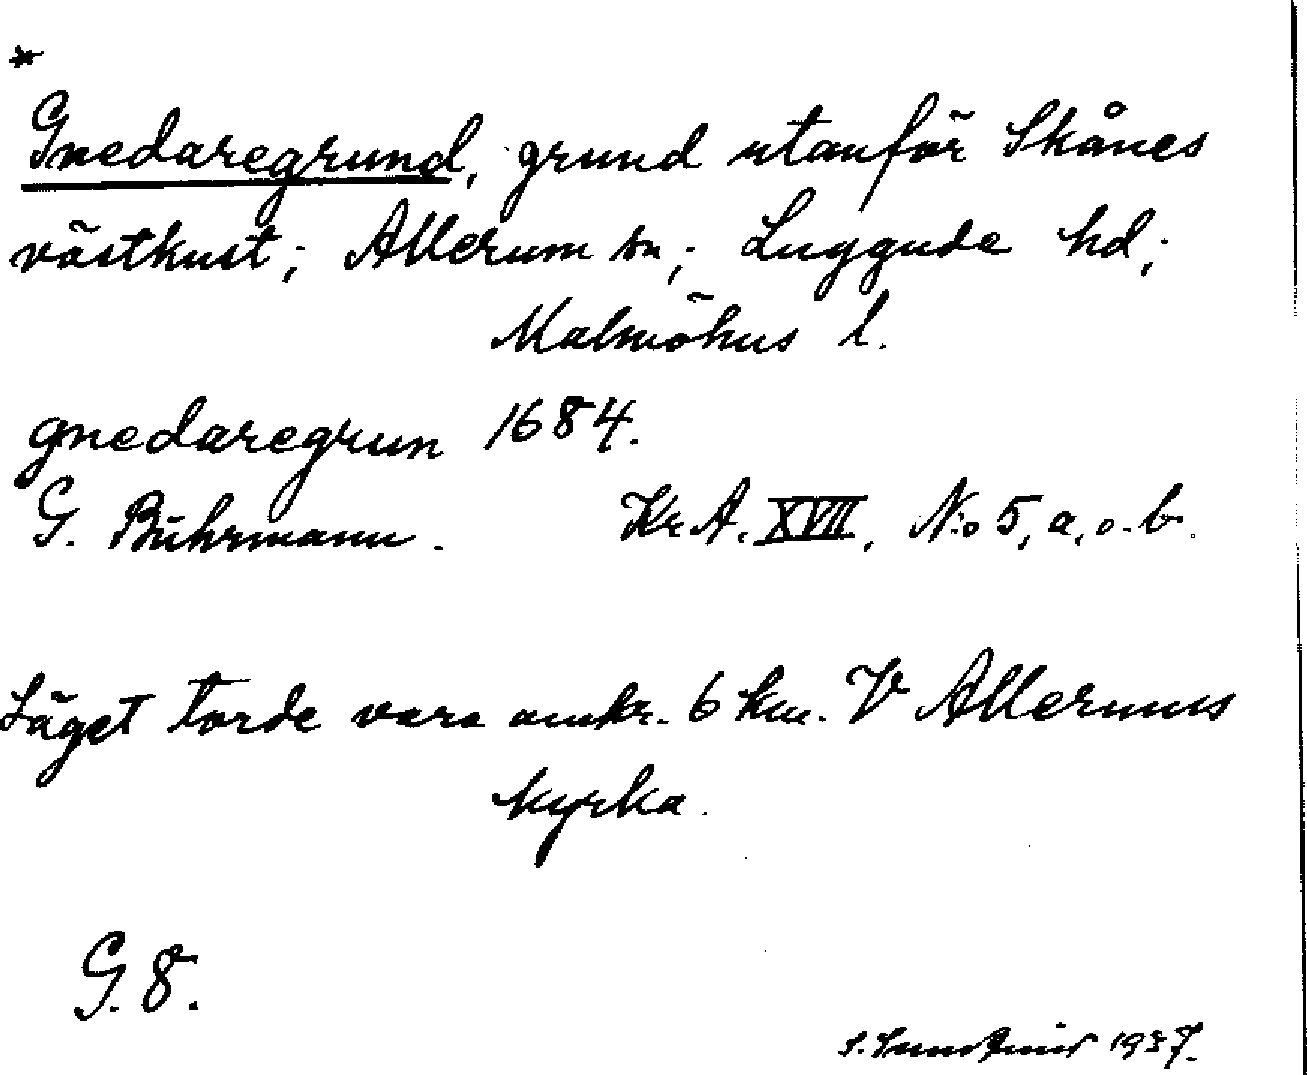 *
Gnedaregrund, grund utanför Skånes
västkust; Allerum sn; Luggude hd;
Malmöhus l.
gnedaregrun 1684.
G. Buhrmann. Kr. A. XVII, N:o 5, a, o. b.
Läget torde vara omkr. 6 km. V Allerums
kyrka.
G. 8.
S. 1937.